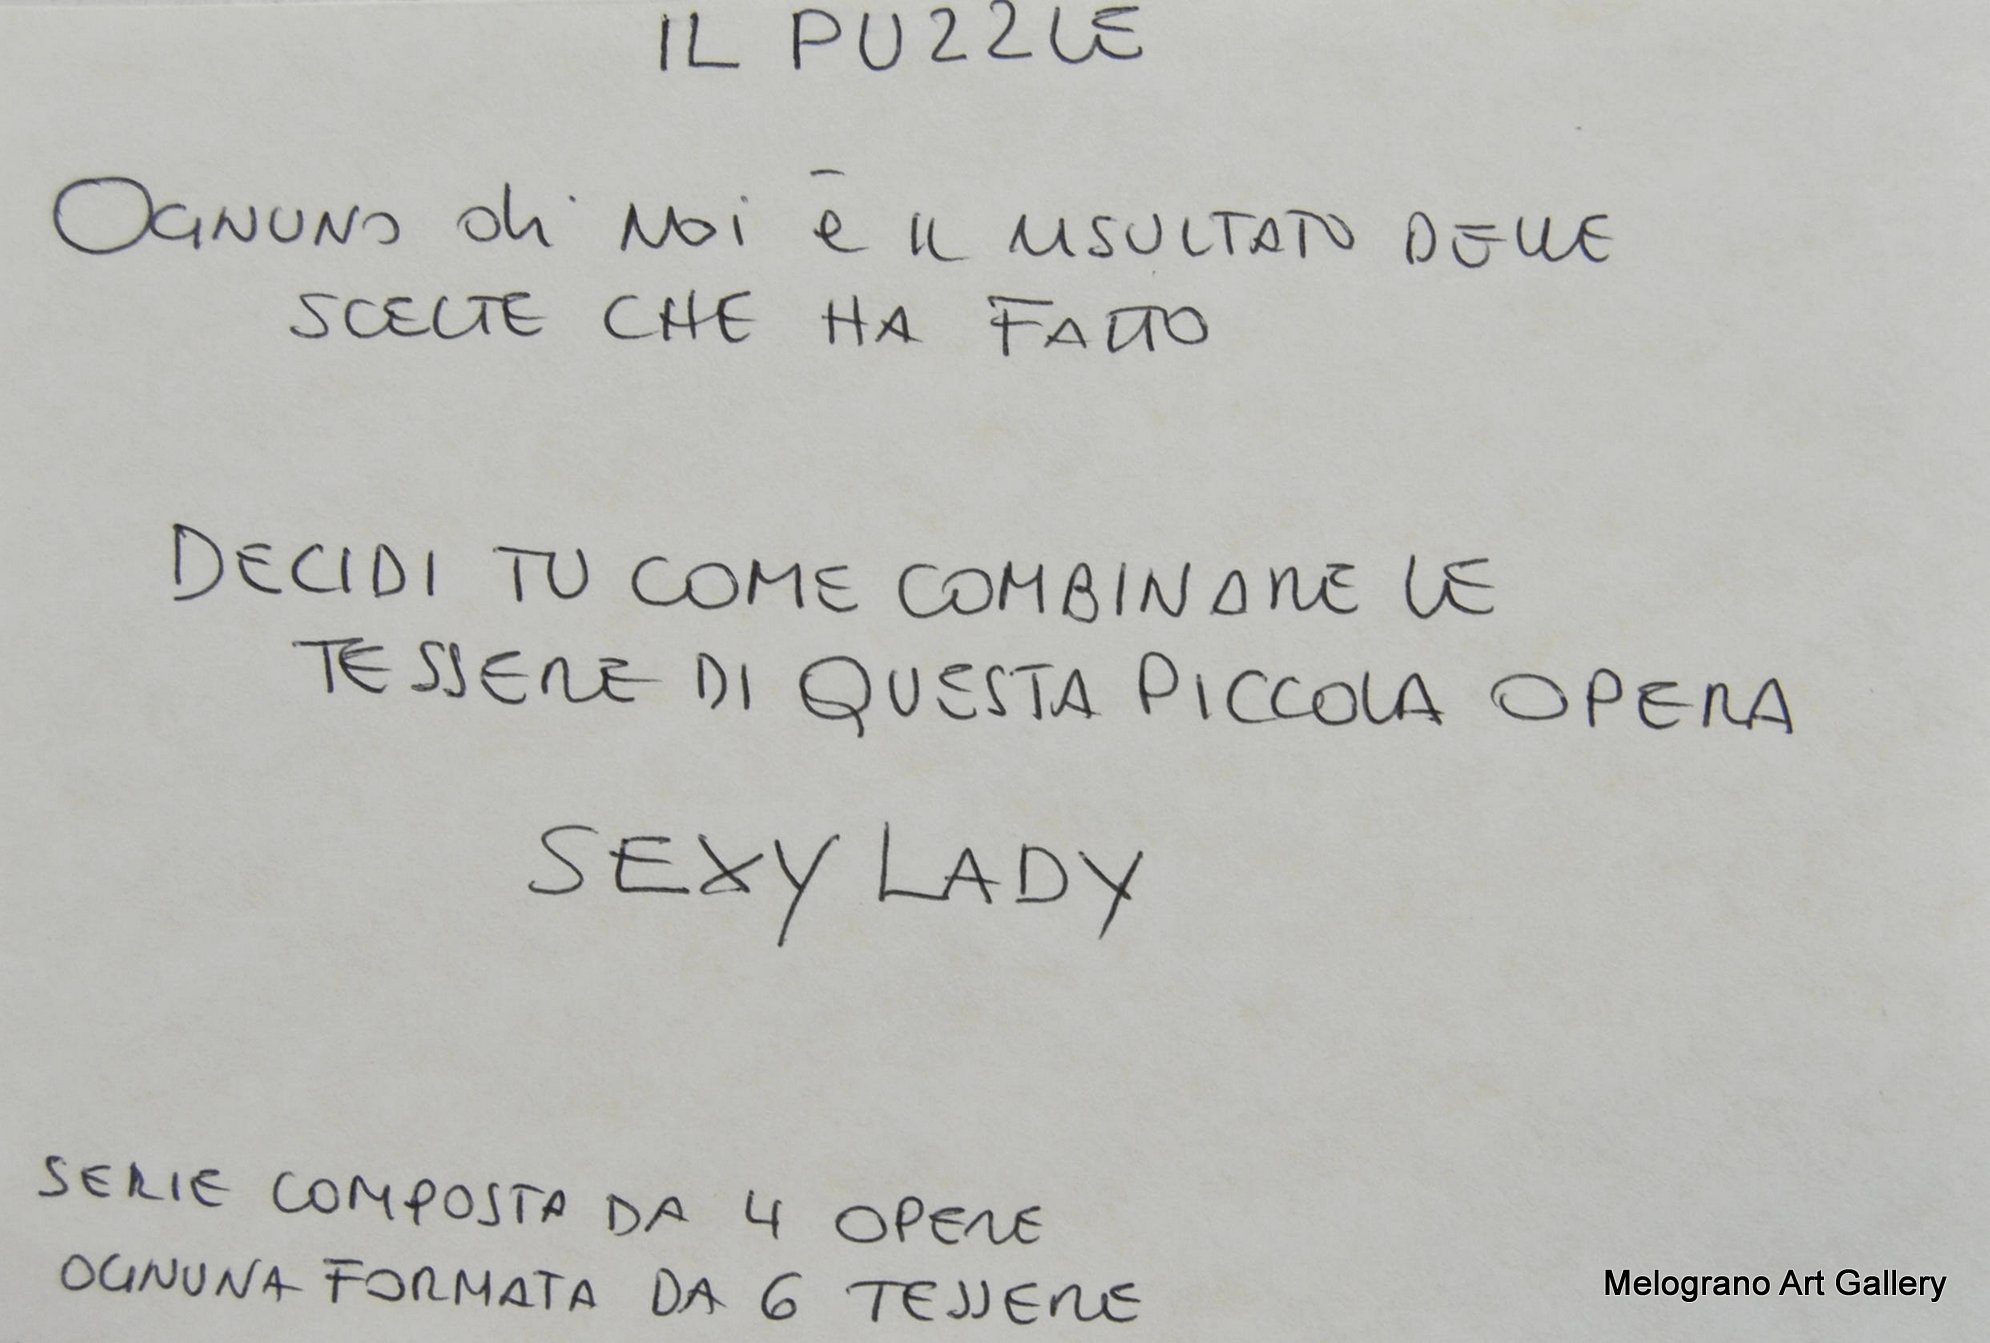 IL PUZZLE
OGNUNO di NOi è IL RISULTATO DELLE
SCELTE CHE HA FATTO
DECIDI TU COME COMBINARE LE
TESSERE DI QUESTA PICCOLA OPERA
SEXY LADY
SERIE COMPOSTA DA 4 OPERE
OGNUNA FORMATA DA 6 TESSERE
Melograno Art Gallery